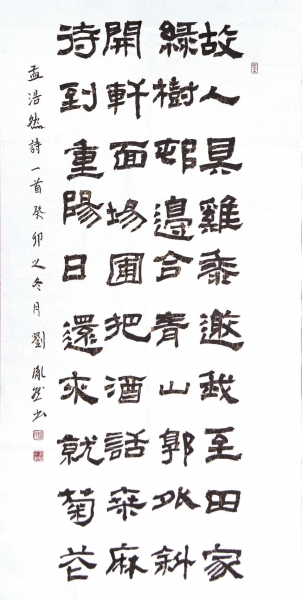 故人具雞黍邀我至田家
綠樹邨邊合青山郭外斜
開軒面場圃把酒話桑麻
待到重陽日還來就菊花
孟浩然詩一首癸卯之冬月劉胤然書